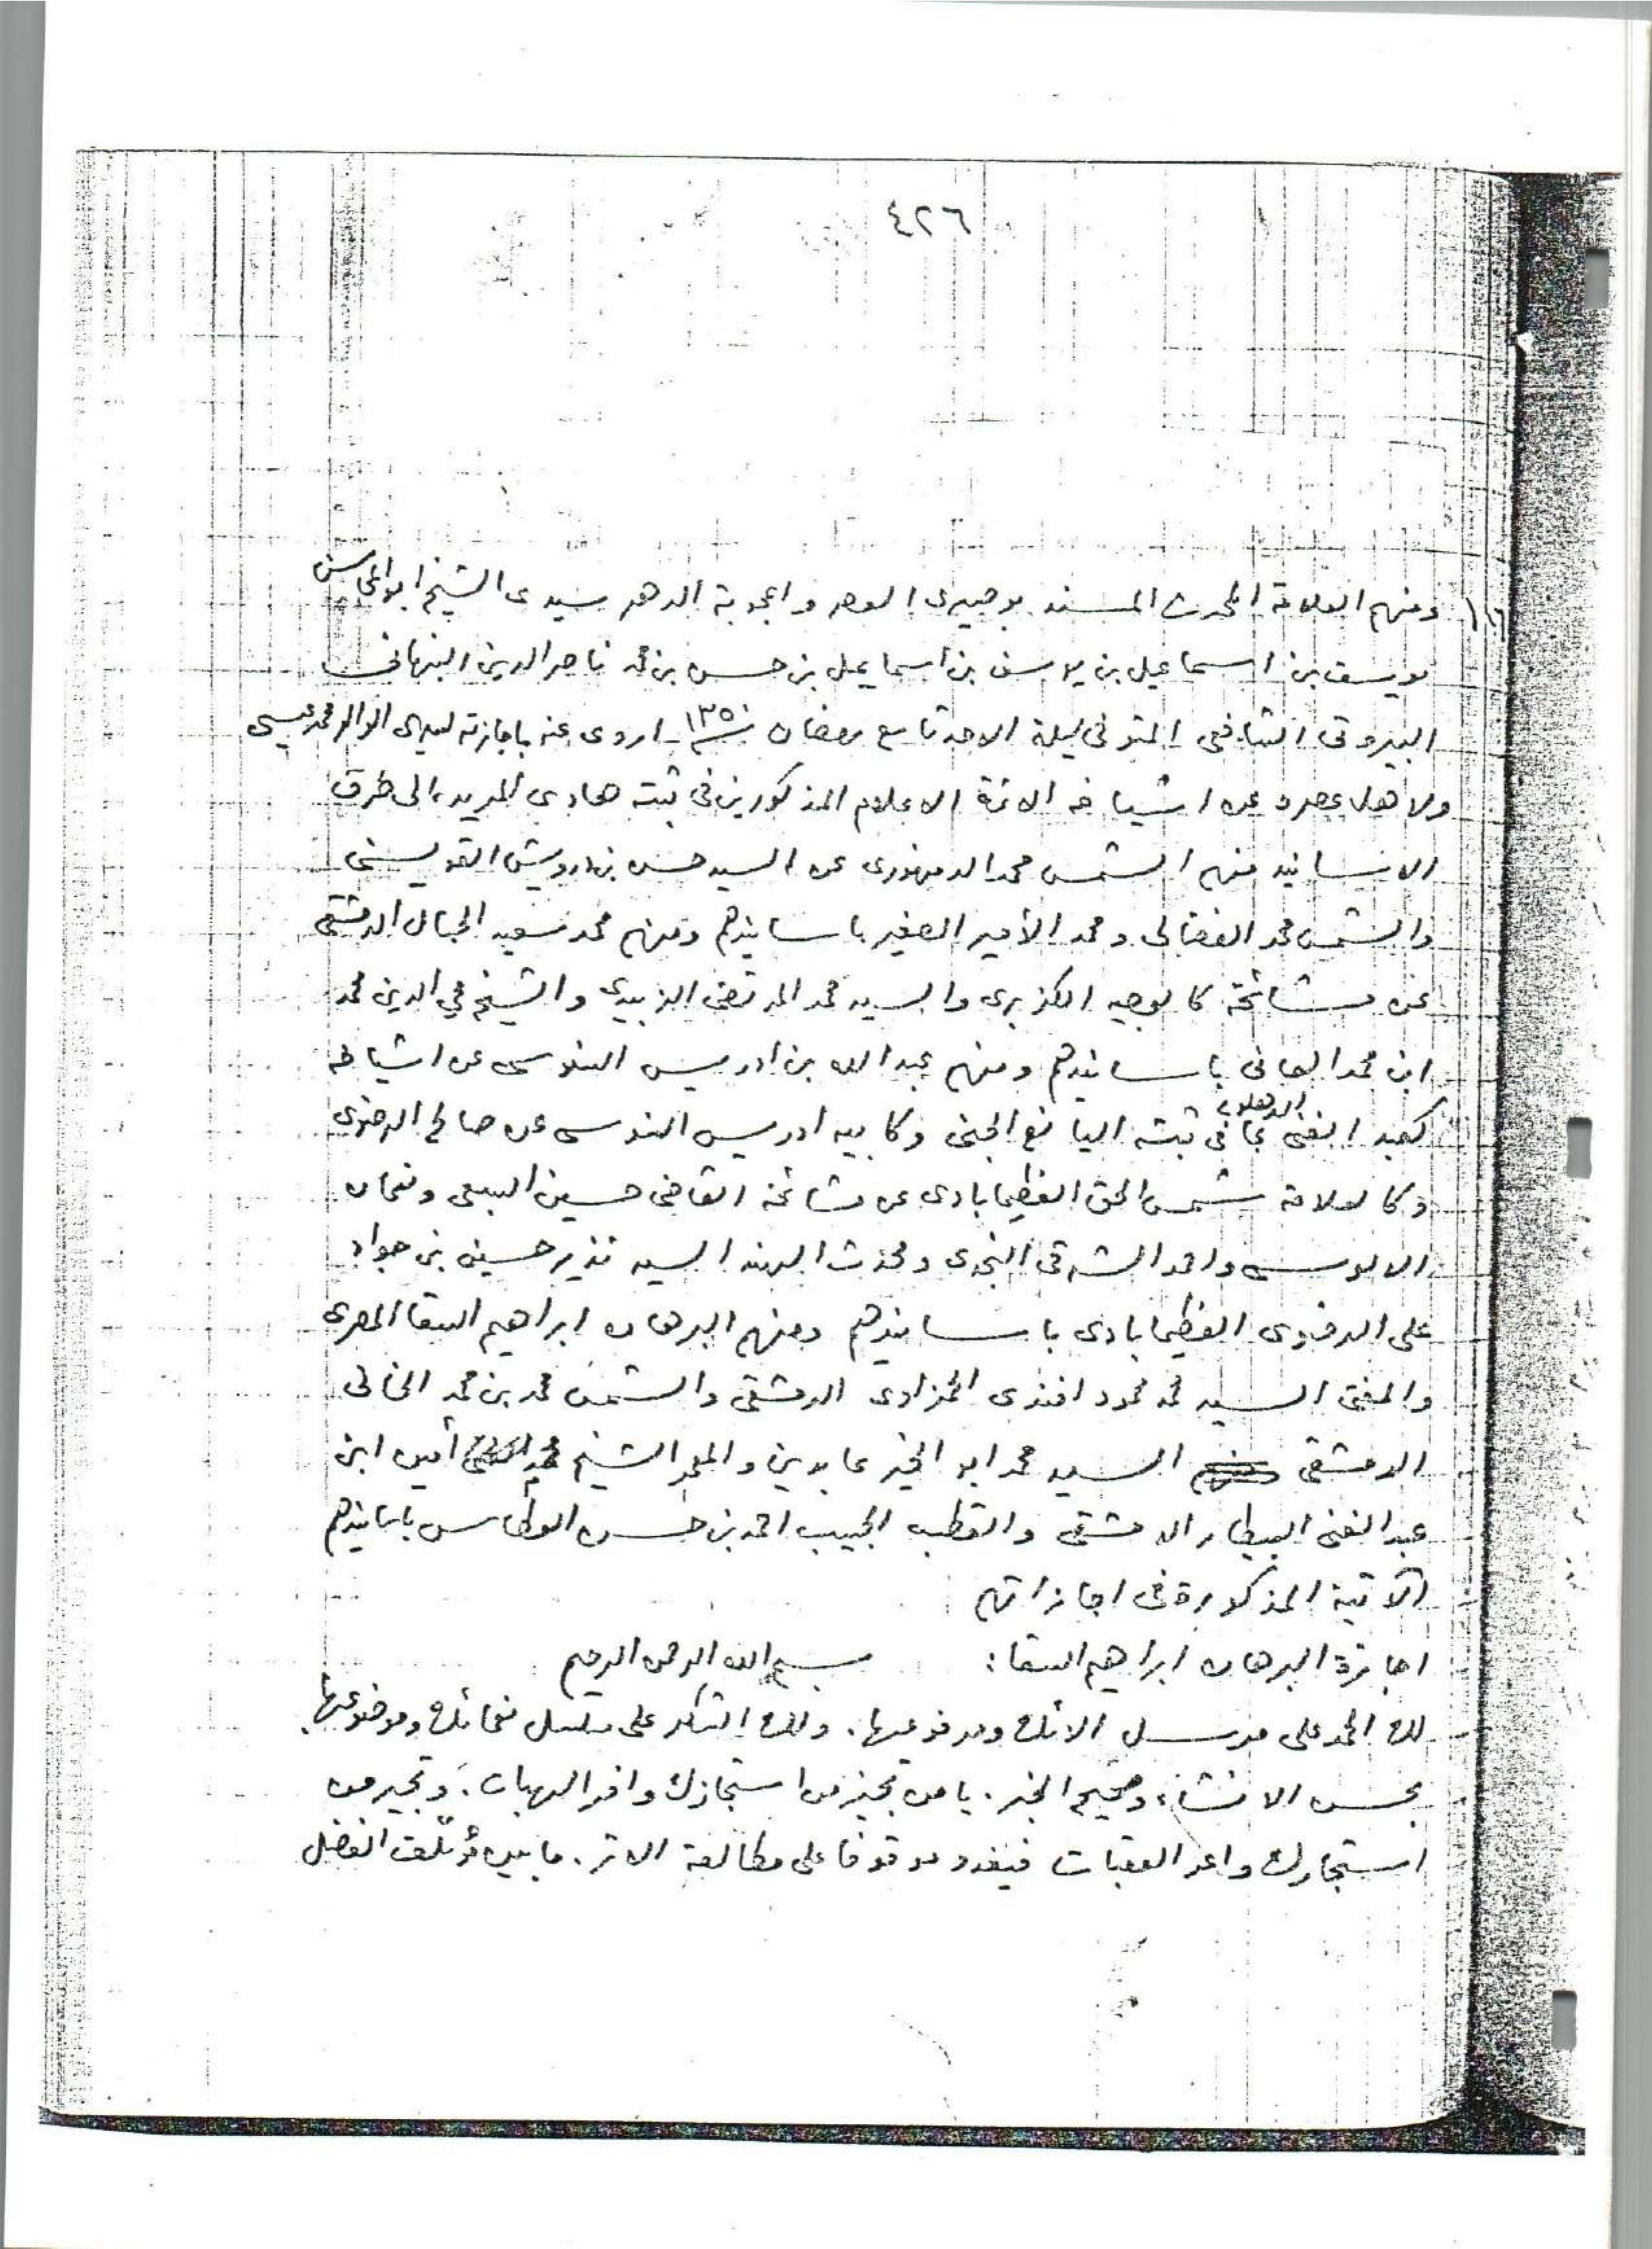 ٤٢٦
ومنهم العلامة المحدث المسند بوصيرى العصر واعجوبة الدهر سيدى الشيخ ابو المحاسن
يوسف بن اسماعيل بن يوسف بن اسماعيل بن حسن بن محمد ناصر الدين النبهانى
البيروتى الشافعى المتوفى ليلة الاحد تاسع رمضان سنة ١٣٥٠ اروى عنه باجازته لسيدى الوالد محمد عيسى
ولاهل عصره عن اشياخه الائمة الاعلام المذكورين فى ثبته هادى المريد الى طرق
الاسانيد منهم الشمس محمد الدمنهورى عن السيد حسن بن درويش القويسنى
والشمس محمد الفضالى ومحمد الأمير الصغير باسانيدهم ومنهم محمد سعيد الحبال الدمشقى
عن مشائخه كالوجيه الكزبرى والسيد محمد المرتضى الزبيدى والشيخ محي الدين محمد
ابن محمد العانى باسانيدهم ومنهم عبد الله بن ادريس السنوسى عن اشياخه
كعبد الغنى الدهلوى بما فى ثبته اليانع الجنى وكابيه ادريس السنوسى عن صالح الرضوى
وكالعلامة شمس الحق العظيمابادى عن مشائخه القاضى حسين السبعى ونعمان
الالوسى واحمد الشرقى النجدى ومحدث الهند السيد نذير حسين بن جواد
على الرضوى العظيمابادى باسانيدهم ومنهم البرهان ابراهيم السقا المصرى
والمفتى السيد محمد محمود افندى الحمزاوى الدمشقى والشمس محمد بن محمد الخانى
الدمشقى السيد محمد ابو الخير عابدين والمعمر الشيخ محمد أمين ابن
عبد الغنى البيطار الدمشقى والقطب الحبيب احمد بن حسن العطاس باسانيدهم
الآتية المذكورة فى اجازاتهم
اجازة البرهان ابراهيم السقا: بسم الله الرحمن الرحيم
لك الحمد على مرسل الائك ومرفوعها. ولك الشكر على مسلسل نعمائك وموضوعها.
بحسن الانشاء وصحيح الخبر. يا من تجيز من استجازك وافر الهبات. وتجير من
استجارك واعر العقبات فيغدو موقوفا على مطالعة الاثر. ما بين مؤتلف الفضل